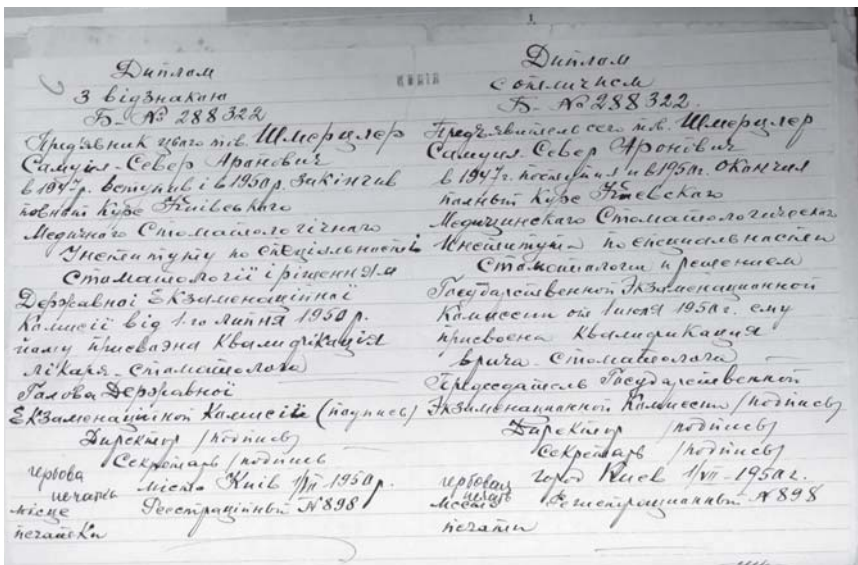 Диплом
З відзнакою
Б- № 288322
Пред'явник цього тов. Шмерцлер
Самуил-Север Аронович
в 1947р. вступив і в 1950р. закінчив
повний Курс Київського
Медичного Стоматологічного
Институту по спеціальності
Стоматології і рішенням
Державної Екзаменаційної
Комисії від 1-го липня 1950 р.
йому присвоэна Квалифікація
лікаря-стоматолога
Голова Державної
Екзаменаційной Комисії (подпись)
Директор /подпись/
Секретарь /подпись
гербова
печатк місто Київ 1/VII 1950р.
місце Реестраційный N 898
печатки
Диплом
с отличием
Б- № 288322.
Предъявитель сего тов. Шмерцлер
Самуил. Север Аронович
в 1947г. поступил и в 1950г. окончил
полный Курс Киевского
Медицинского Стоматологического
Института по специальности
Стоматологи и решением
Государственной Экзаменационной
Комиссии от 1 июля 1950г. ему
присвоена Квалификация
врача-стоматолога
Председатель Государственной
Экзаменационной Комиссии /подпись/
Директор /подпись/
Секретарь /подпись/
гербовая город Киев 1/VII-1950г.
печать
место Регистрационный N 898
печати